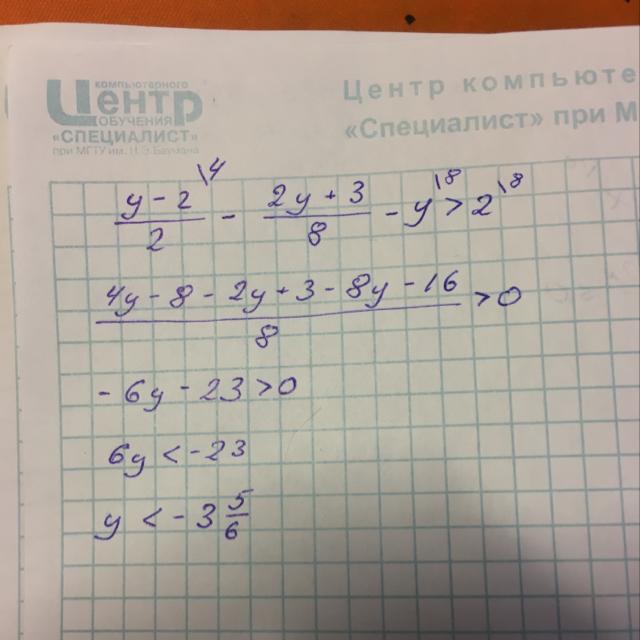 компьютерного
Центр
ОБУЧЕНИЯ
«СПЕЦИАЛИСТ»
при МГТУ им. Н.Э.Баумана
Центр компьюте
«Специалист» при М
(y - 2)/2 \4 - (2y + 3)/8 - y \8 > 2 \8
(4y - 8 - 2y + 3 - 8y - 16)/8 > 0
- 6y - 23 > 0
6y < - 23
y < - 3 5/6